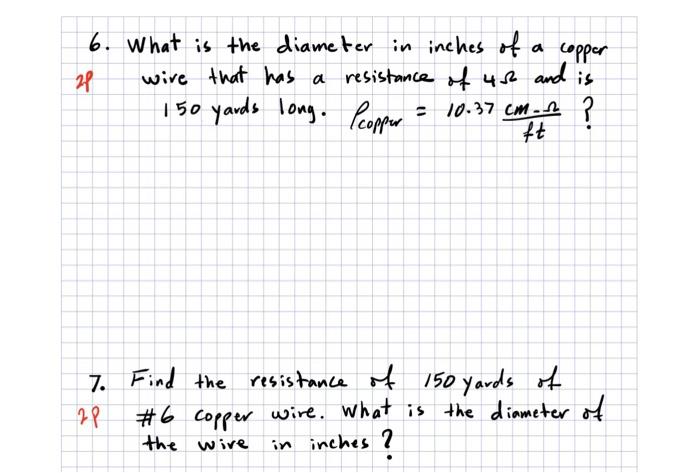 6. What is the diameter in inches of a copper
2P wire that has a resistance of 4Ω and is
150 yards long. ρcopper = 10.37 cm-Ω/ft ?
7. Find the resistance of 150 yards of
2P #6 copper wire. What is the diameter of
the wire in inches ?